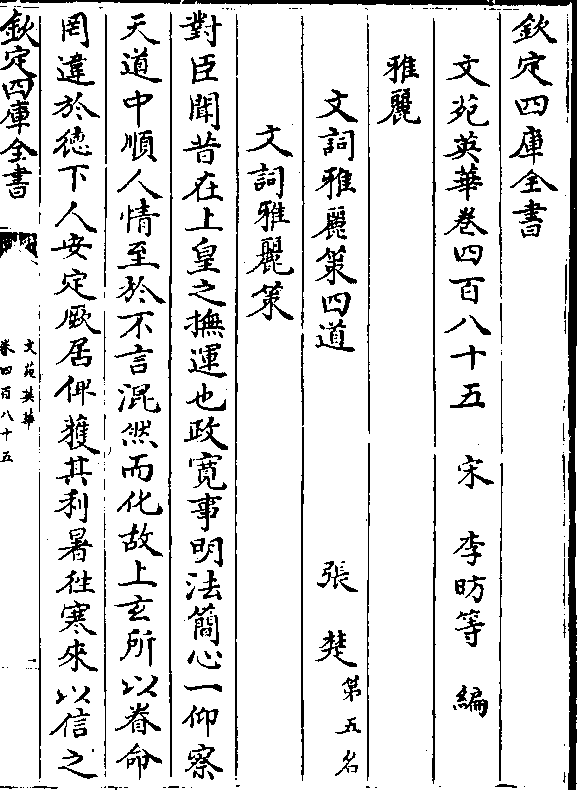 欽定四庫全書
文苑英華卷四百八十五　宋　李昉等　編
雅麗
文詞雅麗策四道　張　楚第五名
文詞雅麗策
對臣聞昔在上皇之撫運也政寛事明法簡心一仰察
天道中順人情至於不言混然而化故上玄所以眷命
罔違於徳下人安定厥居俾獲其利暑往寒來以信之
欽定四庫全書
文苑英華
卷四百八十五
一